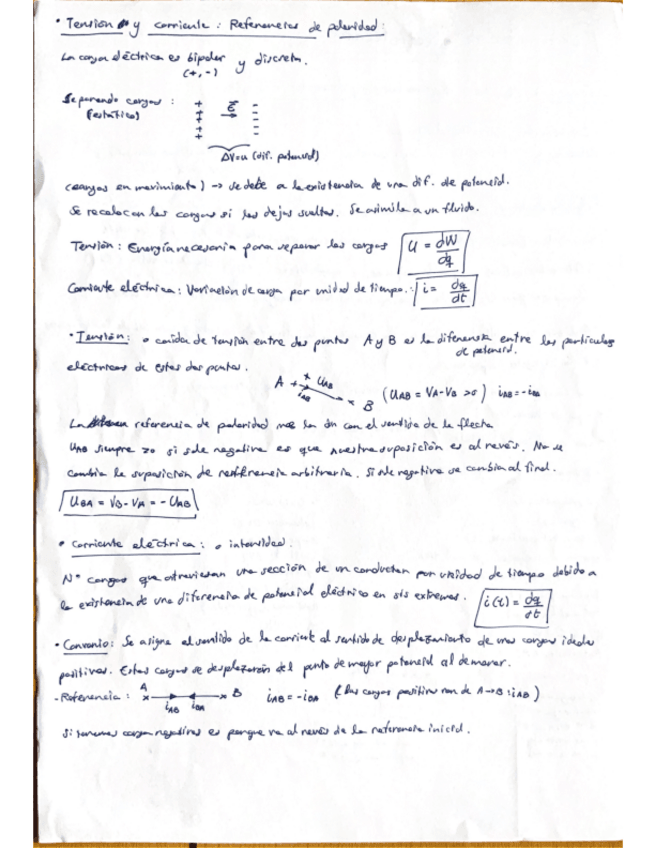 • Tensión y corriente : Referencias de polaridad :
La carga eléctrica es bipolar y discreta.
(+, -)
Separando cargas :
(estático)
+ E -
ΔV=u (dif. potencial)
(cargas en movimiento) -> se debe a la existencia de una dif. de potencial.
Se recolocan las cargas si las dejas sueltas. Se asimila a un fluido.
Tensión : Energía necesaria para separar las cargas U = dW/dq
Corriente eléctrica : Variación de carga por unidad de tiempo. : i = dq/dt
• Tensión : o caída de tensión entre dos puntos A y B es la diferencia entre las partículas
de potencial.
eléctricas de estos dos puntos.
A + UAB iAB B (UAB = VA-VB >0) iAB=-iBA
La referencia de polaridad nos la dan con el sentido de la flecha
UAB siempre >0 si sale negativa es que nuestra suposición es al revés. No se
cambia la suposición de referencia arbitraria. Si sale negativa se cambia al final.
UBA = VB-VA = -UAB
• Corriente eléctrica : o intensidad.
Nº cargas que atraviesan una sección de un conductor por unidad de tiempo debido a
la existencia de una diferencia de potencial eléctrico en sus extremos. i(t) = dq/dt
• Convenio : Se asigna el sentido de la corriente al sentido de desplazamiento de unas cargas ideales
positivas. Estas cargas se desplazarán del punto de mayor potencial al de menor.
- Referencia : A iAB iBA B iAB = -iBA (las cargas positivas van de A->B : iAB)
Si tenemos cargas negativas es porque va al revés de la referencia inicial.